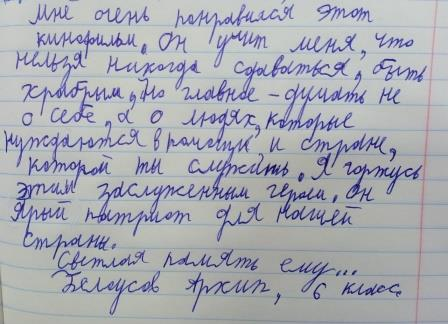 Мне очень понравился этот
кинофильм. Он учит меня, что
нельзя никогда сдаваться, быть
храбрым, но главное - думать не
о себе, а о людях, которые
нуждаются в помощи и стране,
которой ты служить. Я горжусь
этим заслуженным героем. Он
ярый патриот для нашей
страны.
Светлая память ему...
Белоусов Архип, 6 класс.